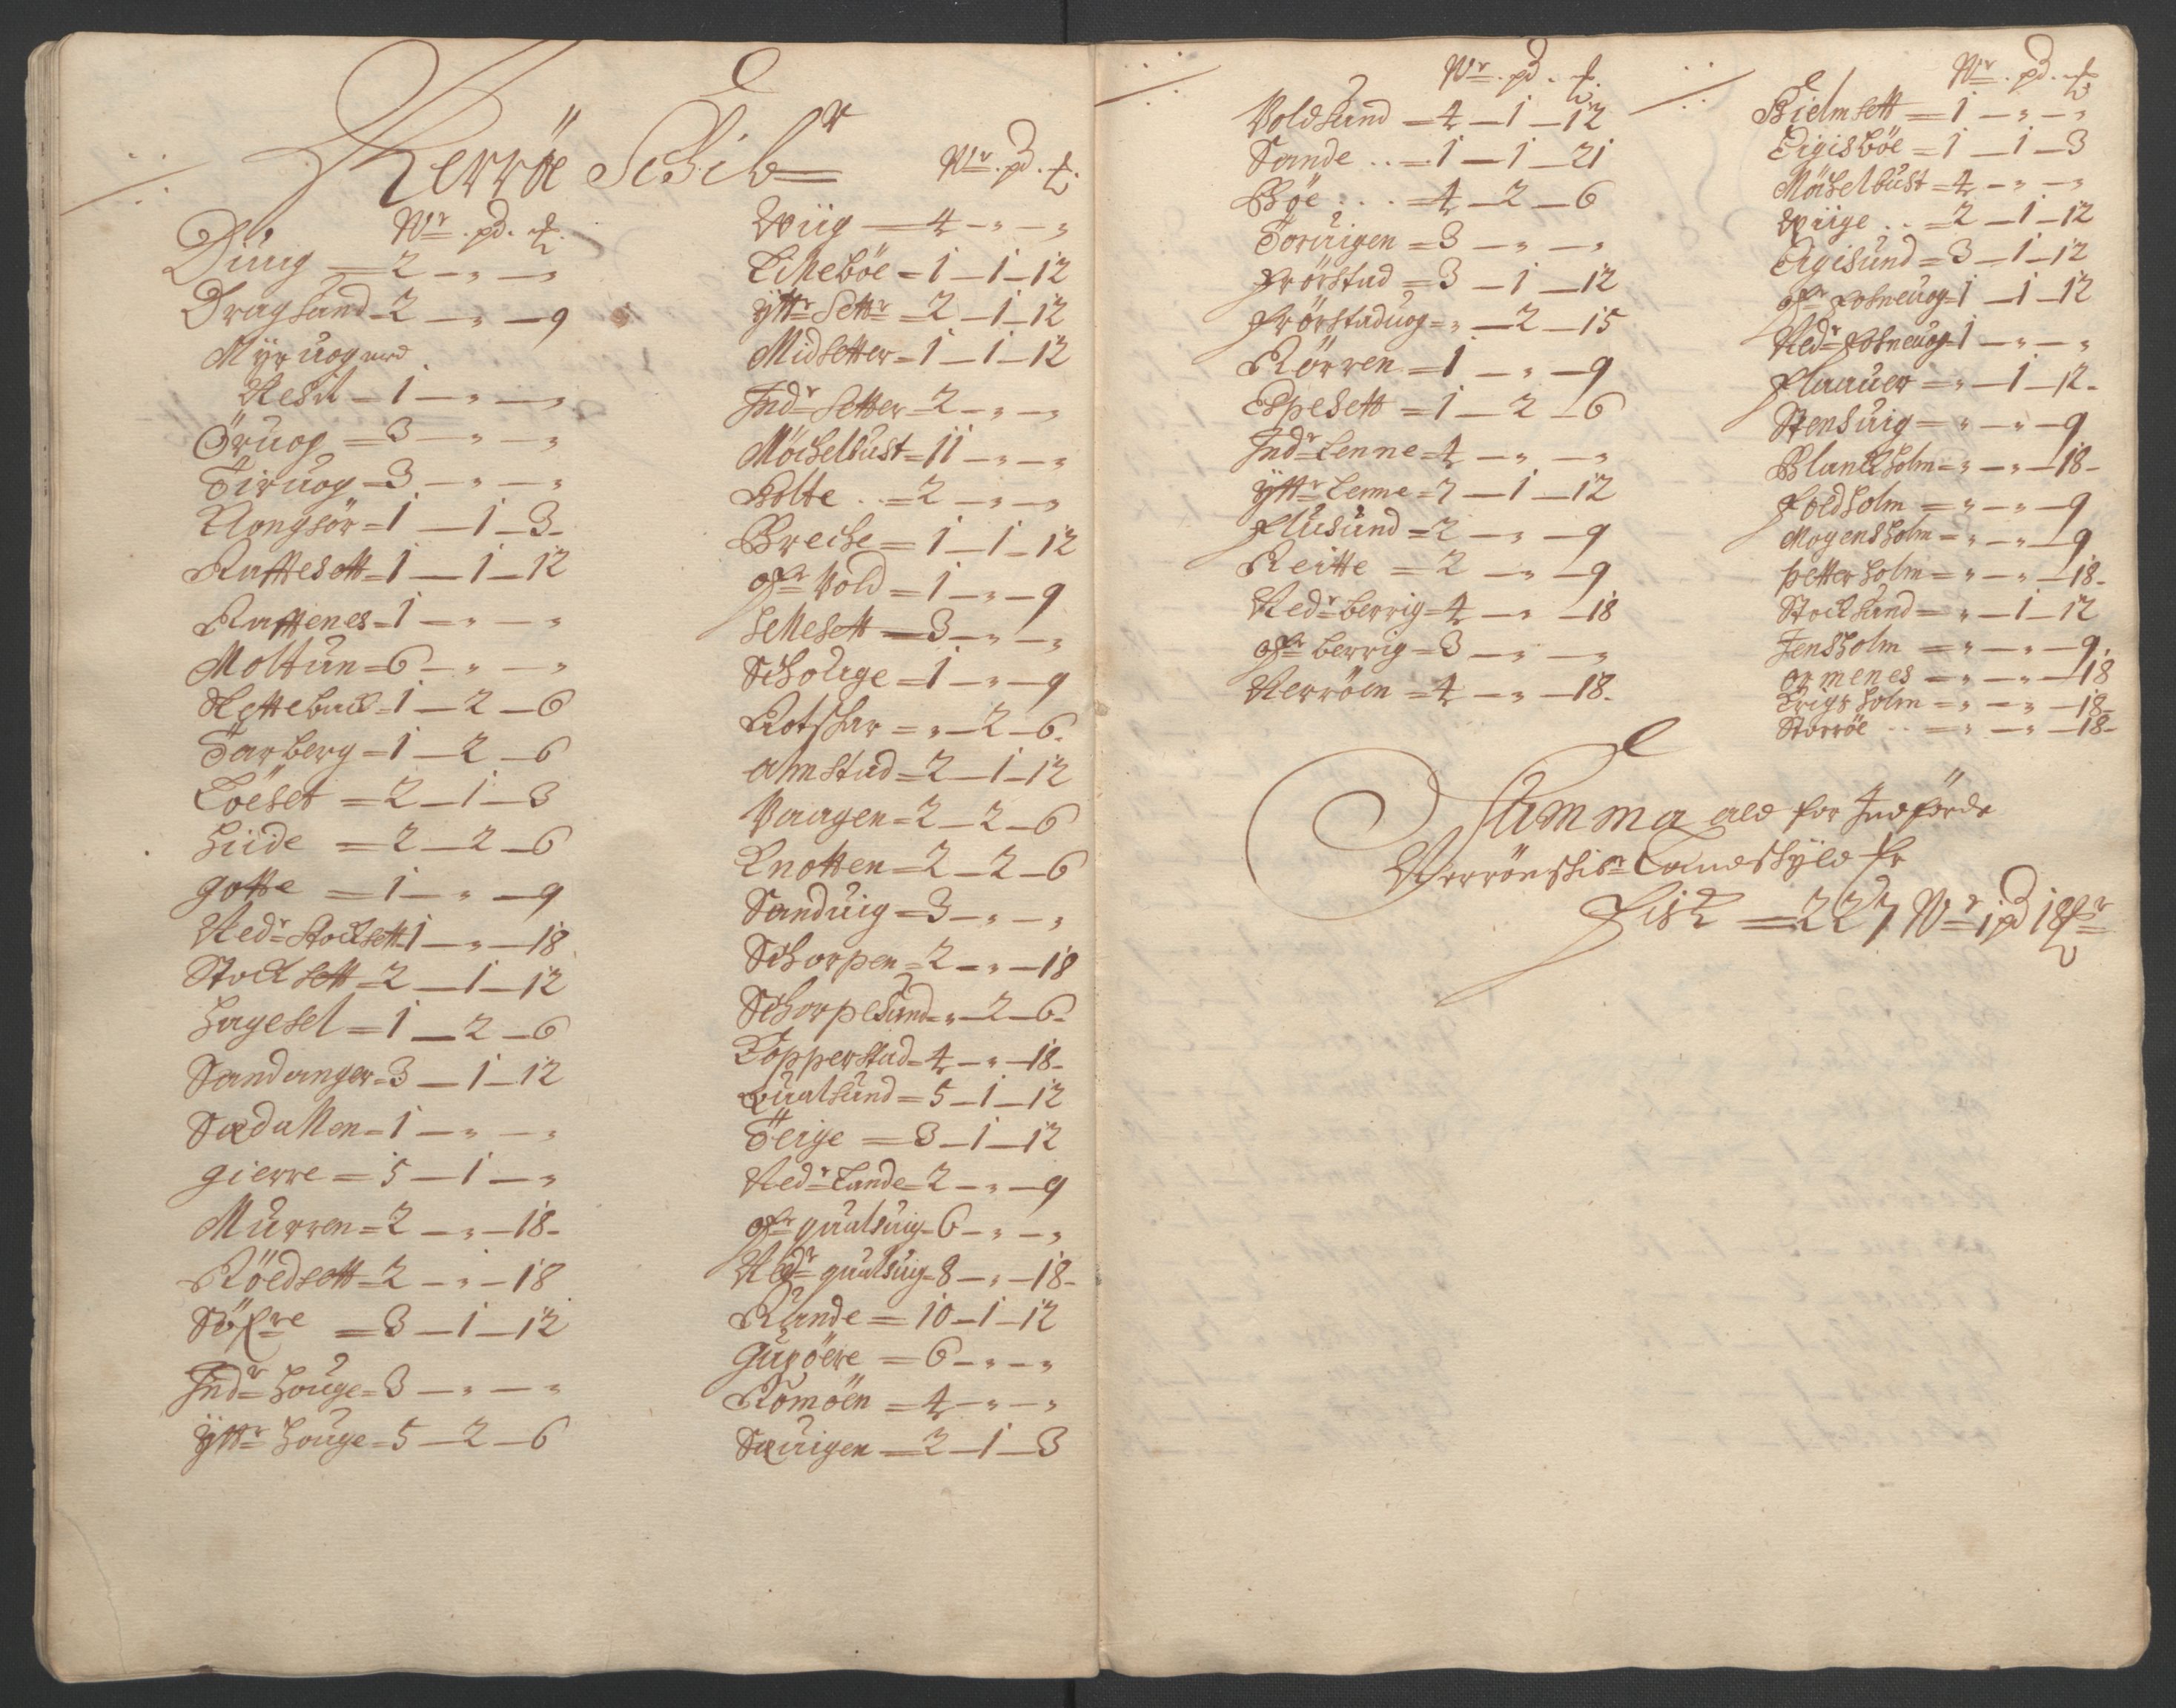 Herröe Schibr
Wr. pd. ℔.
Düng = 2 — " — "
Dragsund = 2 — " — 9
Myruog med
Nesit — 1 — " — "
Öruog = 3 — " — "
Tiruog = 3 — " — "
Rongsör = 1 — 1 — 3
Raffteset = 1 — 1 — 12
Rafftenes = 1 — " — "
Moltun = 6 — " — "
Nettebach = 1 — 2 — 6
Tarberg = 1 — 2 — 6
Löeset = 2 — 1 — 3
Hiide = 2 — 2 — 6
Gotte = 1 — " — 9
Nedr Stocksett 1 — " — 18
Stocksett = 2 — 1 — 12
Hagesel = 1 — 2 — 6
Sandanger = 3 — 1 — 12
Sædallen = 1 — " — "
Gierre = 5 — 1 — "
Murren = 2 — " — 18
Röedsett = 2 — " — 18
Söfre = 3 — 1 — 12
Indr Houge = 3 — " — "
Yttr Houge = 5 — 2 — 6
Wr. pd. ℔.
Wiig — 4 — " — "
Eikeböe = 1 — 1 — 12
Yttr Settr = 2 — 1 — 12
Midsetter = 1 — 1 — 12
Indr Setter = 2 — " — "
Möchelbust = 11 — " — "
Holte .. = 2 — " — "
Breche = 1 — 1 — 12
Ofr Vold = 1 — " — 9
Sellesett = 3 — " — "
Scholige = 1 — " — 9
Rotschar = " — 2 — 6
Almstad = 2 — 1 — 12
Vaagen = 2 — 2 — 6
Knotten = 2 — 2 — 6
Sanduig = 3 — " — "
Schorpen = 2 — " — 18
Schorpesund = " — 2 — 6
Topperstad = 4 — " — 18
Qualsund = 5 — 1 — 12
Teige = 3 — 1 — 12
Nedr Lande = 2 — " — 9
Ofr qualsuig = 6 — " — "
Nedr qualsuig = 8 — " — 18
Runde = 10 — 1 — 12
Gursöere = 6 — " — "
Romöen = 4 — " — "
Sæuigen = 2 — 1 — 3
Wr. pd. ℔.
Voldsund = 4 — 1 — 12
Sande .. = 1 — 1 — 21
Böe ... = 4 — 2 — 6
Toruigen = 3 — " — "
Frörstad = 3 — 1 — 12
Frörstaduog = " — 2 — 15
Rörren = 1 — " — 9
Espesett = 1 — 2 — 6
Indr Lenne = 4 — " — "
Yttr Lenne = 2 — 1 — 12
Flusund = 2 — " — 9
Reitte = 2 — " — 9
Nedr berrig = 4 — " — 18
Ofr berrig = 3 — " — "
Nerröen = 4 — " — 18
Wr. pd. ℔
Hielmsett = 1 — " — "
Eigisböe = 1 — 1 — 3
Möchelbust = 4 — " — "
Wiige .. = 2 — 1 — 12
Eigisund = 3 — 1 — 12
Ofr Fosneuog = 1 — 1 — 12
Nedr Fosneuog = 1 — " — "
Flaauer = " — 1 — 12
Stensuig = " — " — 9
Blanckholm = " — " — 18
Foldholm = " — " — 9
Mogensholm = " — " — 9
Petterholm = " — " — 18
Stocksund = " — 1 — 12
Jensholm = " — " — 9
Ormenes = " — " — 18
Trigsholm = " — " — 18
Storröe .. = " — " — 18
Summa ald for Indförde
Nerröe Schibr Landskyld er
Fisk = 227 Wr 1 pd 18 ℔r